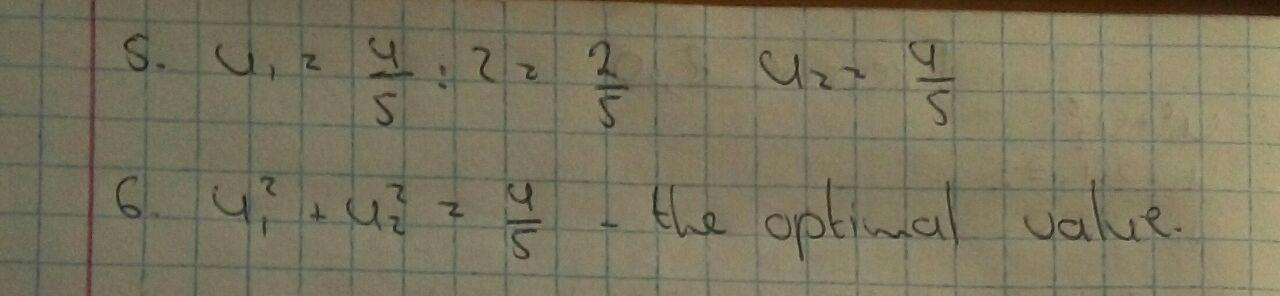 5. u₁ = 4/5 : 2 = 2/5 u₂ = 4/5
6. u₁² + u₂² = 4/5 - the optimal value.